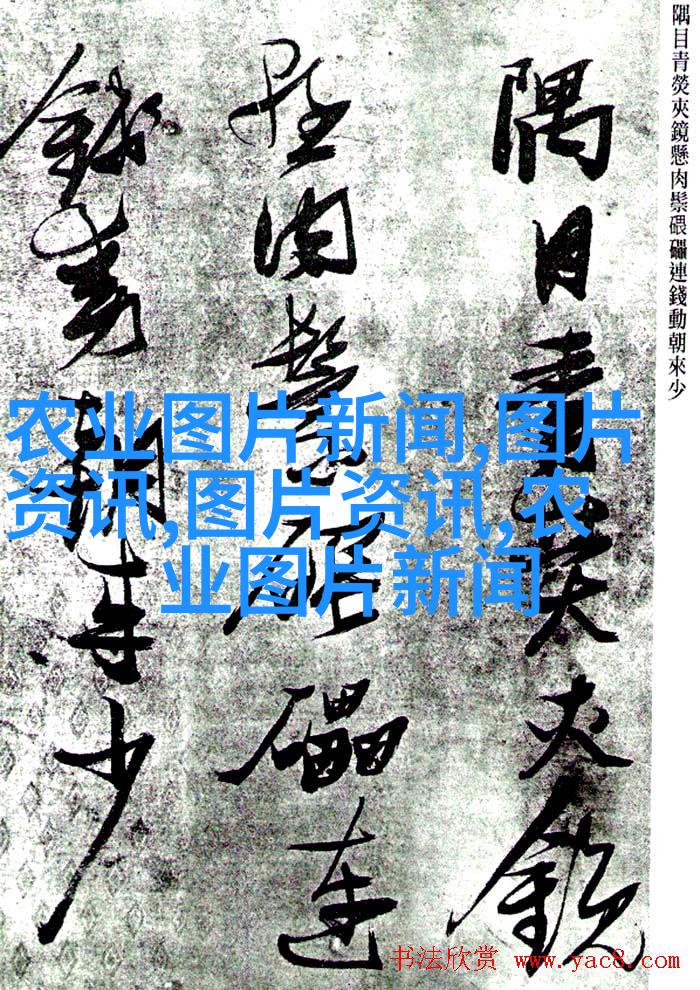 隅目青熒夾鏡懸肉鬃碨礧連錢動朝來少
隅目青熒夾鏡
懸肉鬃碨礧連
錢動朝來少
农业图片新闻,图片
资讯,图片资讯,农
业图片新闻
书法欣赏 www.yac8.com